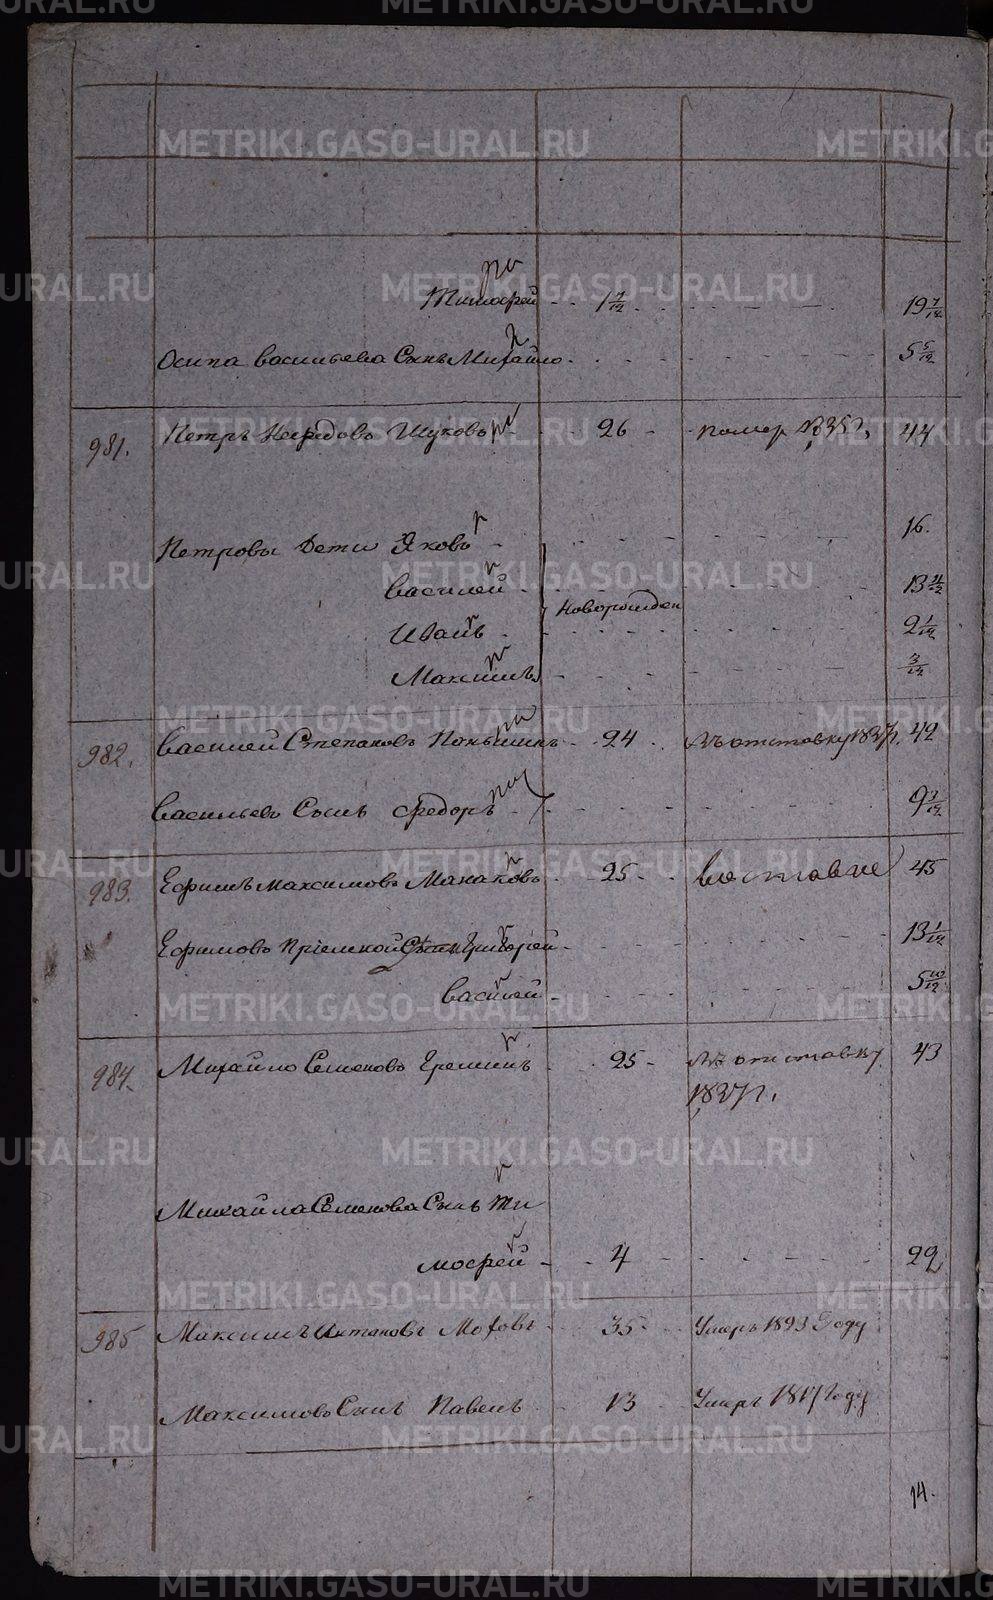 METRIKI.GASO-URAL.RU
ри
Тимофей - - 1 7/12 - - - 19 7/12
Осипа васильева Сынъ Михайло - - - 5 5/12
981. Петръ Шуковъ ри - 26 - помер 1835г. 44
Петровы Дети Яковъ - - - 16.
Василей - - -
Новорожден
Иванъ - - - 2 1/12
Максимъ - - - 3/12
982. Василей Степановъ - 24 - въ отставку 1837г. 42
Васильевъ Сынъ Федоръ - - - 9 3/12
983. Ефимъ Максимовъ Манаковъ - 25 - 45
Ефимовъ Пріемной Сынъ Григорей - - - 13 1/12
Василей - - - 5 10/12
984. Михайло Семеновъ Ереминъ - 25 - въ отставку 43
1837г.
Михайла Семенова Сынъ Ти
мофей - - 4 - - - 22
985 Максимъ Моховъ - 35 - Умеръ Году
Максимовъ Сынъ Павелъ - 13 - Умеръ 1817 Году
14.